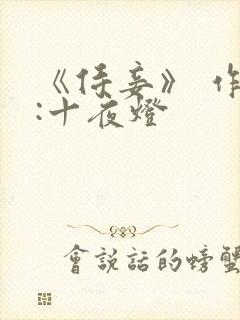 《侍妾》 作
:十夜燈
會說話的螃蟹